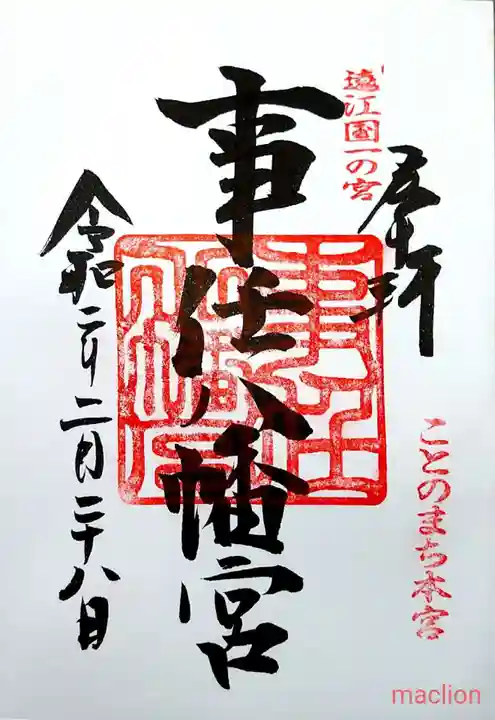 奉拝
遠江国一の宮
ことのまち本宮
事任八幡宮
令和二年二月二十八日
maclion